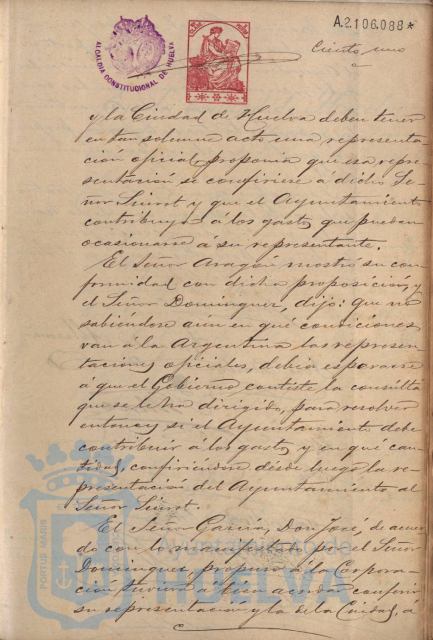 A.2.106.088*
ALCALDIA CONSTITUCIONAL DE HUELVA
Ciento uno
y la Ciudad de Huelva deben tener
en tan solemne acto una representa-
ción oficial, proponia que esa repre-
sentación se confiriese á dicho Se-
ñor Siurot y que el Ayuntamiento
contribuya á los gastos que puedan
ocasionarse á su representante.
El Señor Aragón mostró su con-
formidad con dicha proposición, y
el Señor Dominguez, dijo: que no
sabiéndose aun en qué condiciones
van á la Argentina las represen-
taciones oficiales, debia esperarse
á que el Gobierno conteste la consulta
que se le ha dirigido, para resolver
entonces si el Ayuntamiento debe
contribuir á los gastos y en qué can-
tidad, confiriendose desde luego la re-
presentación del Ayuntamiento al
Señor Siurot.
El Señor Garcia, Don José, de acuer-
do con lo manifestado por el Señor
Dominguez, propuso á la Corpora-
ción tuviera á bien acordar conferir
su representación y la de la Ciudad, á
PORTUS MARIS
Ayuntamiento de
HUELVA